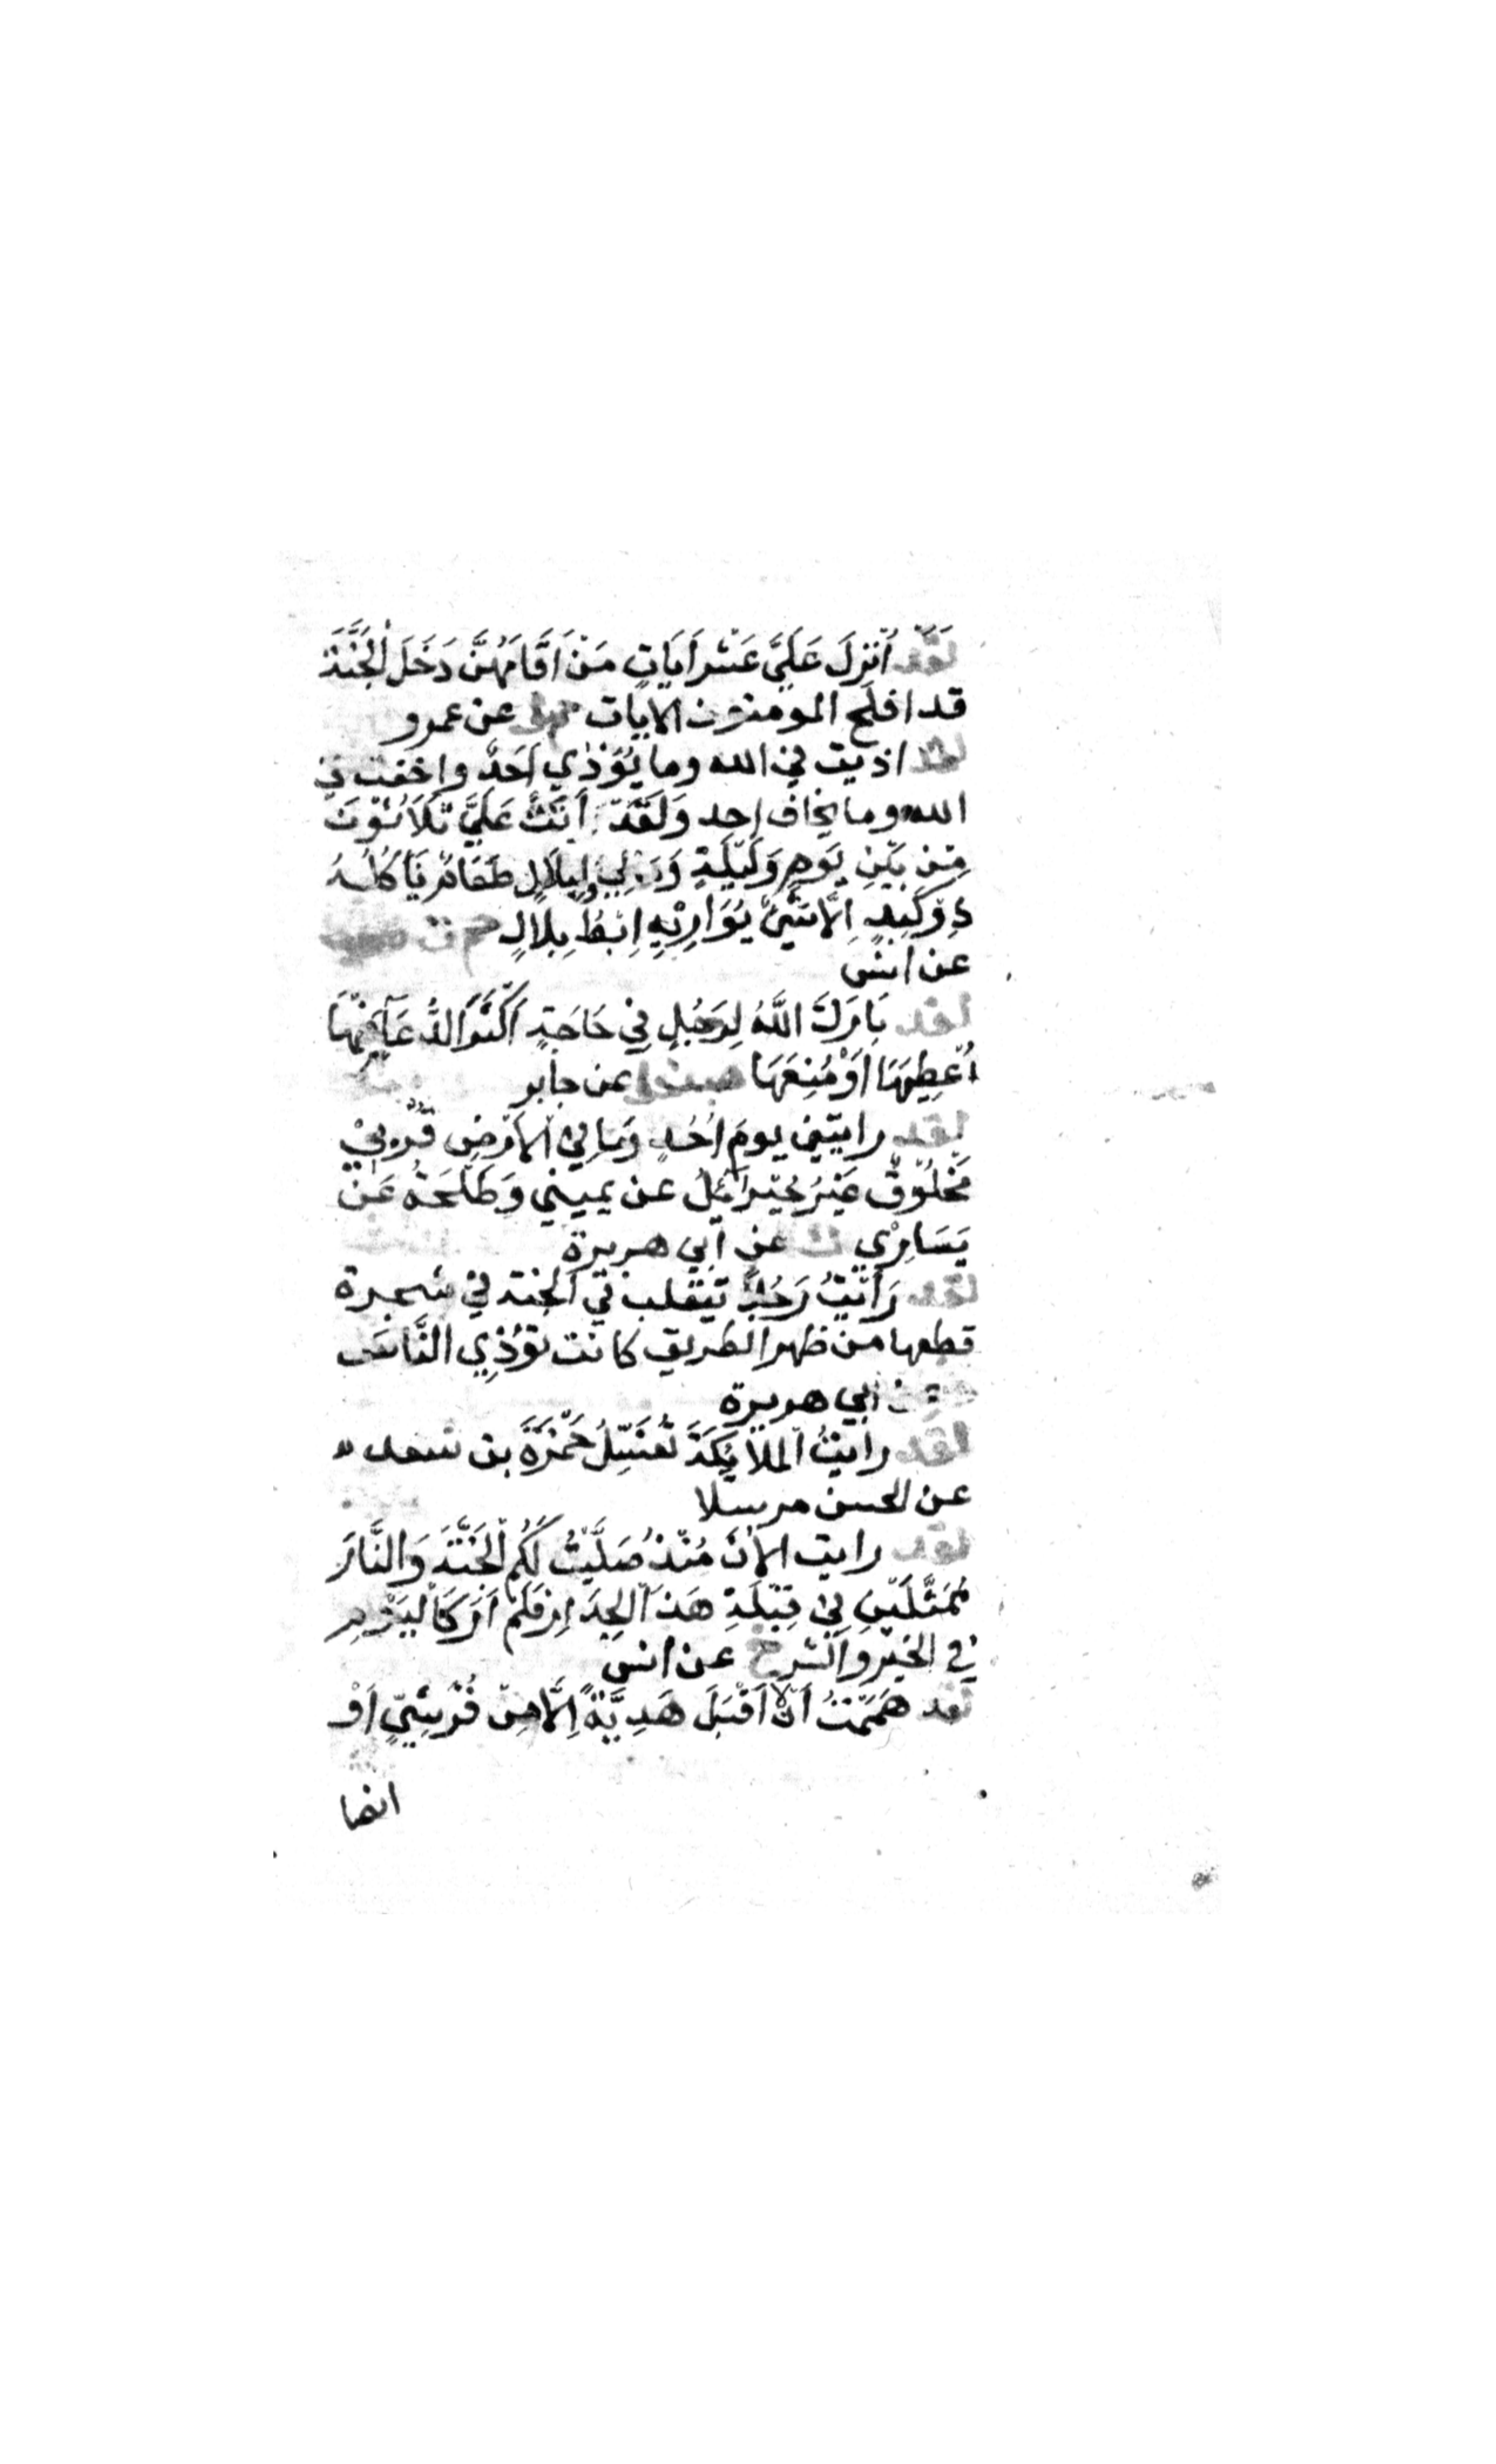 لَقَدْ أُنْزِلَ عَلَيَّ عَشْرُ اَيَاتٍ مَنْ اَقَامَهُنَّ دَخَلَ الْجَنَّةَ
قد افلح المومنون الايات عن عمرو
لقد اذيت في الله وما يُؤْذٰي اَحَدٌ واخفت في
الله وما يخاف احد وَلَقَدْ اَتَتْ عَلَيَّ ثَلَاثُوْنَ
مِنْ بَيْنِ يَوْمٍ وَلَيْلَةٍ وَ لِيْ وَلِبِلَالٍ طَعَامٌ يَأكُلُهُ
ذُوْكَبِدٍ اِلَّا شَيْئٌ يُوَارِيْهِ اِبْطُ بِلَالٍ حم ت
عن انس
لقد بَارَكَ اللّٰهُ لِرَجُلٍ فِيْ حَاجَةٍ اَكْثَرَ الدُّعَآءَ فِيْهَا
اُعْطِيَهَا اَوْ مُنِعَهَا عن جابر
لقد رايتني يومَ اُحُدٍ وَمَا فِي الْاَرْضِ قُرْبِيْ
مَخْلُوْقٌ غَيْرُ جِبْرَائِيْلُ عن يميني وَطَلْحَةُ عَنْ
يَسَارِيْ ك عن ابي هريرة
لقد رَاَيْتُ رَجُلًا يتقلب في الجنة في شجرة
قطعها من ظهر الطريق كانت تؤذِي النَّاسَ
عن ابي هريرة
لقد رايتُ الْمَلَائِكَةَ تُغَسِّلُ حَمْزَةَ بن سعد
عن الحسن مرسلا
لقد رايت الْاٰنَ مُنْذُ صَلَّيْتُ لَكُمُ الْجَنَّةَ وَالنَّارَ
مُمَثَّلَتَيْنِ فِيْ قِبْلَةِ هَذَا الْجِدَارِ فَلَمْ اَرَ كَالْيَوْمِ
في الخير والشر خ عن انس
لقد هَمَمْتُ اَنْ لَا اَقْبَلَ هَدِيَّةً اِلَّا مِنْ قُرَشِيٍّ اَوْ
انصا